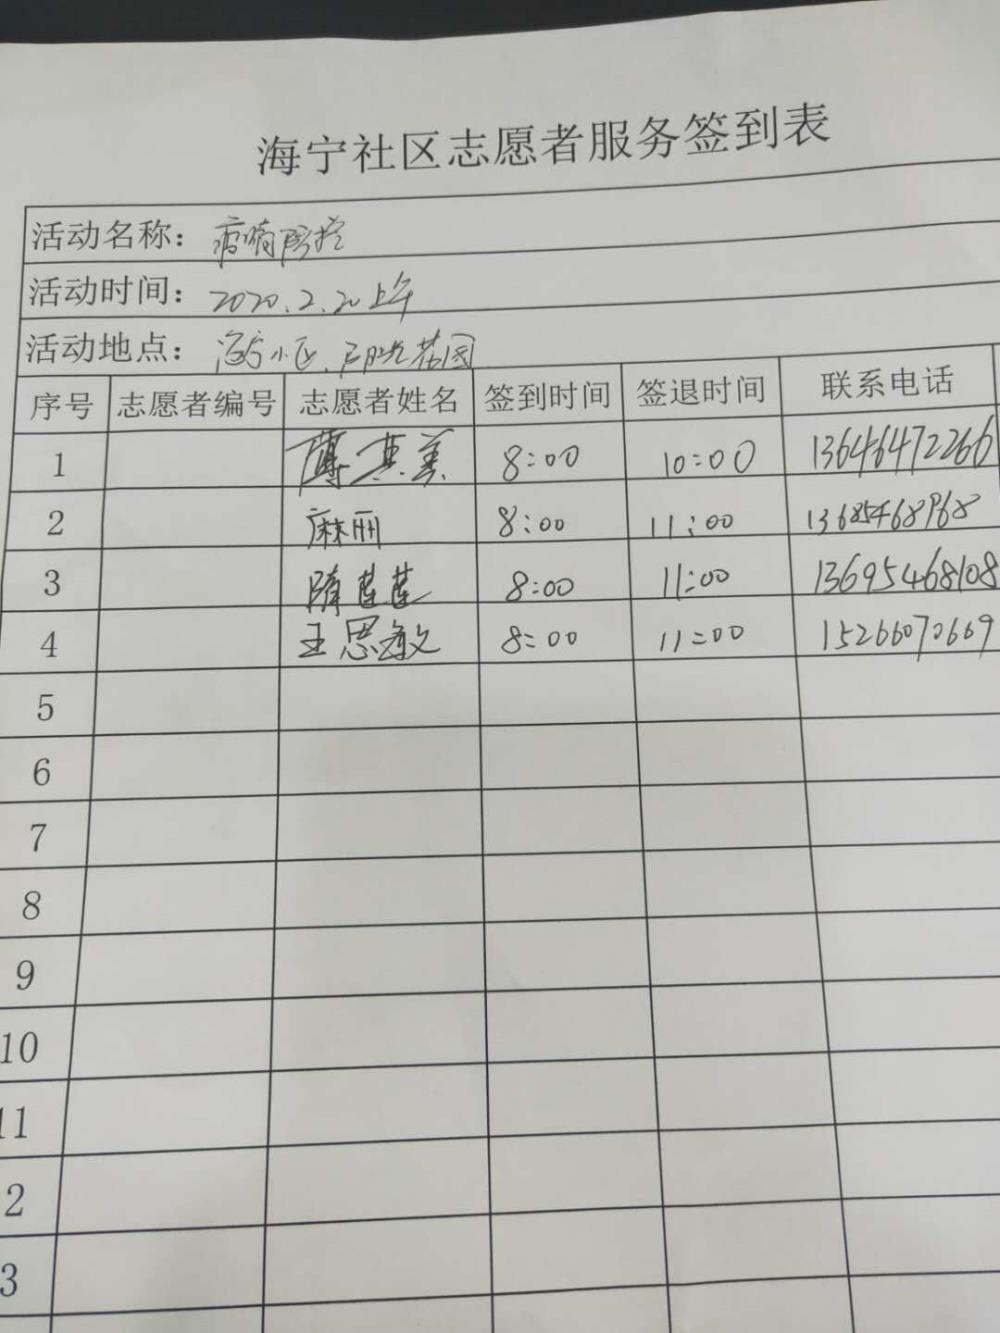 海宁社区志愿者服务签到表
活动名称：疫情防控
活动时间：2020.2.20上午
活动地点：小区、阳光花园
序号 志愿者编号 志愿者姓名 签到时间 签退时间 联系电话
1 薄其美 8:00 10:00 13646472266
2 麻丽 8:00 11:00 13685468968
3 隋莲莲 8:00 11:00 13695468108
4 王思敏 8:00 11:00 15266070669
5
6
7
8
9
10
11
2
3